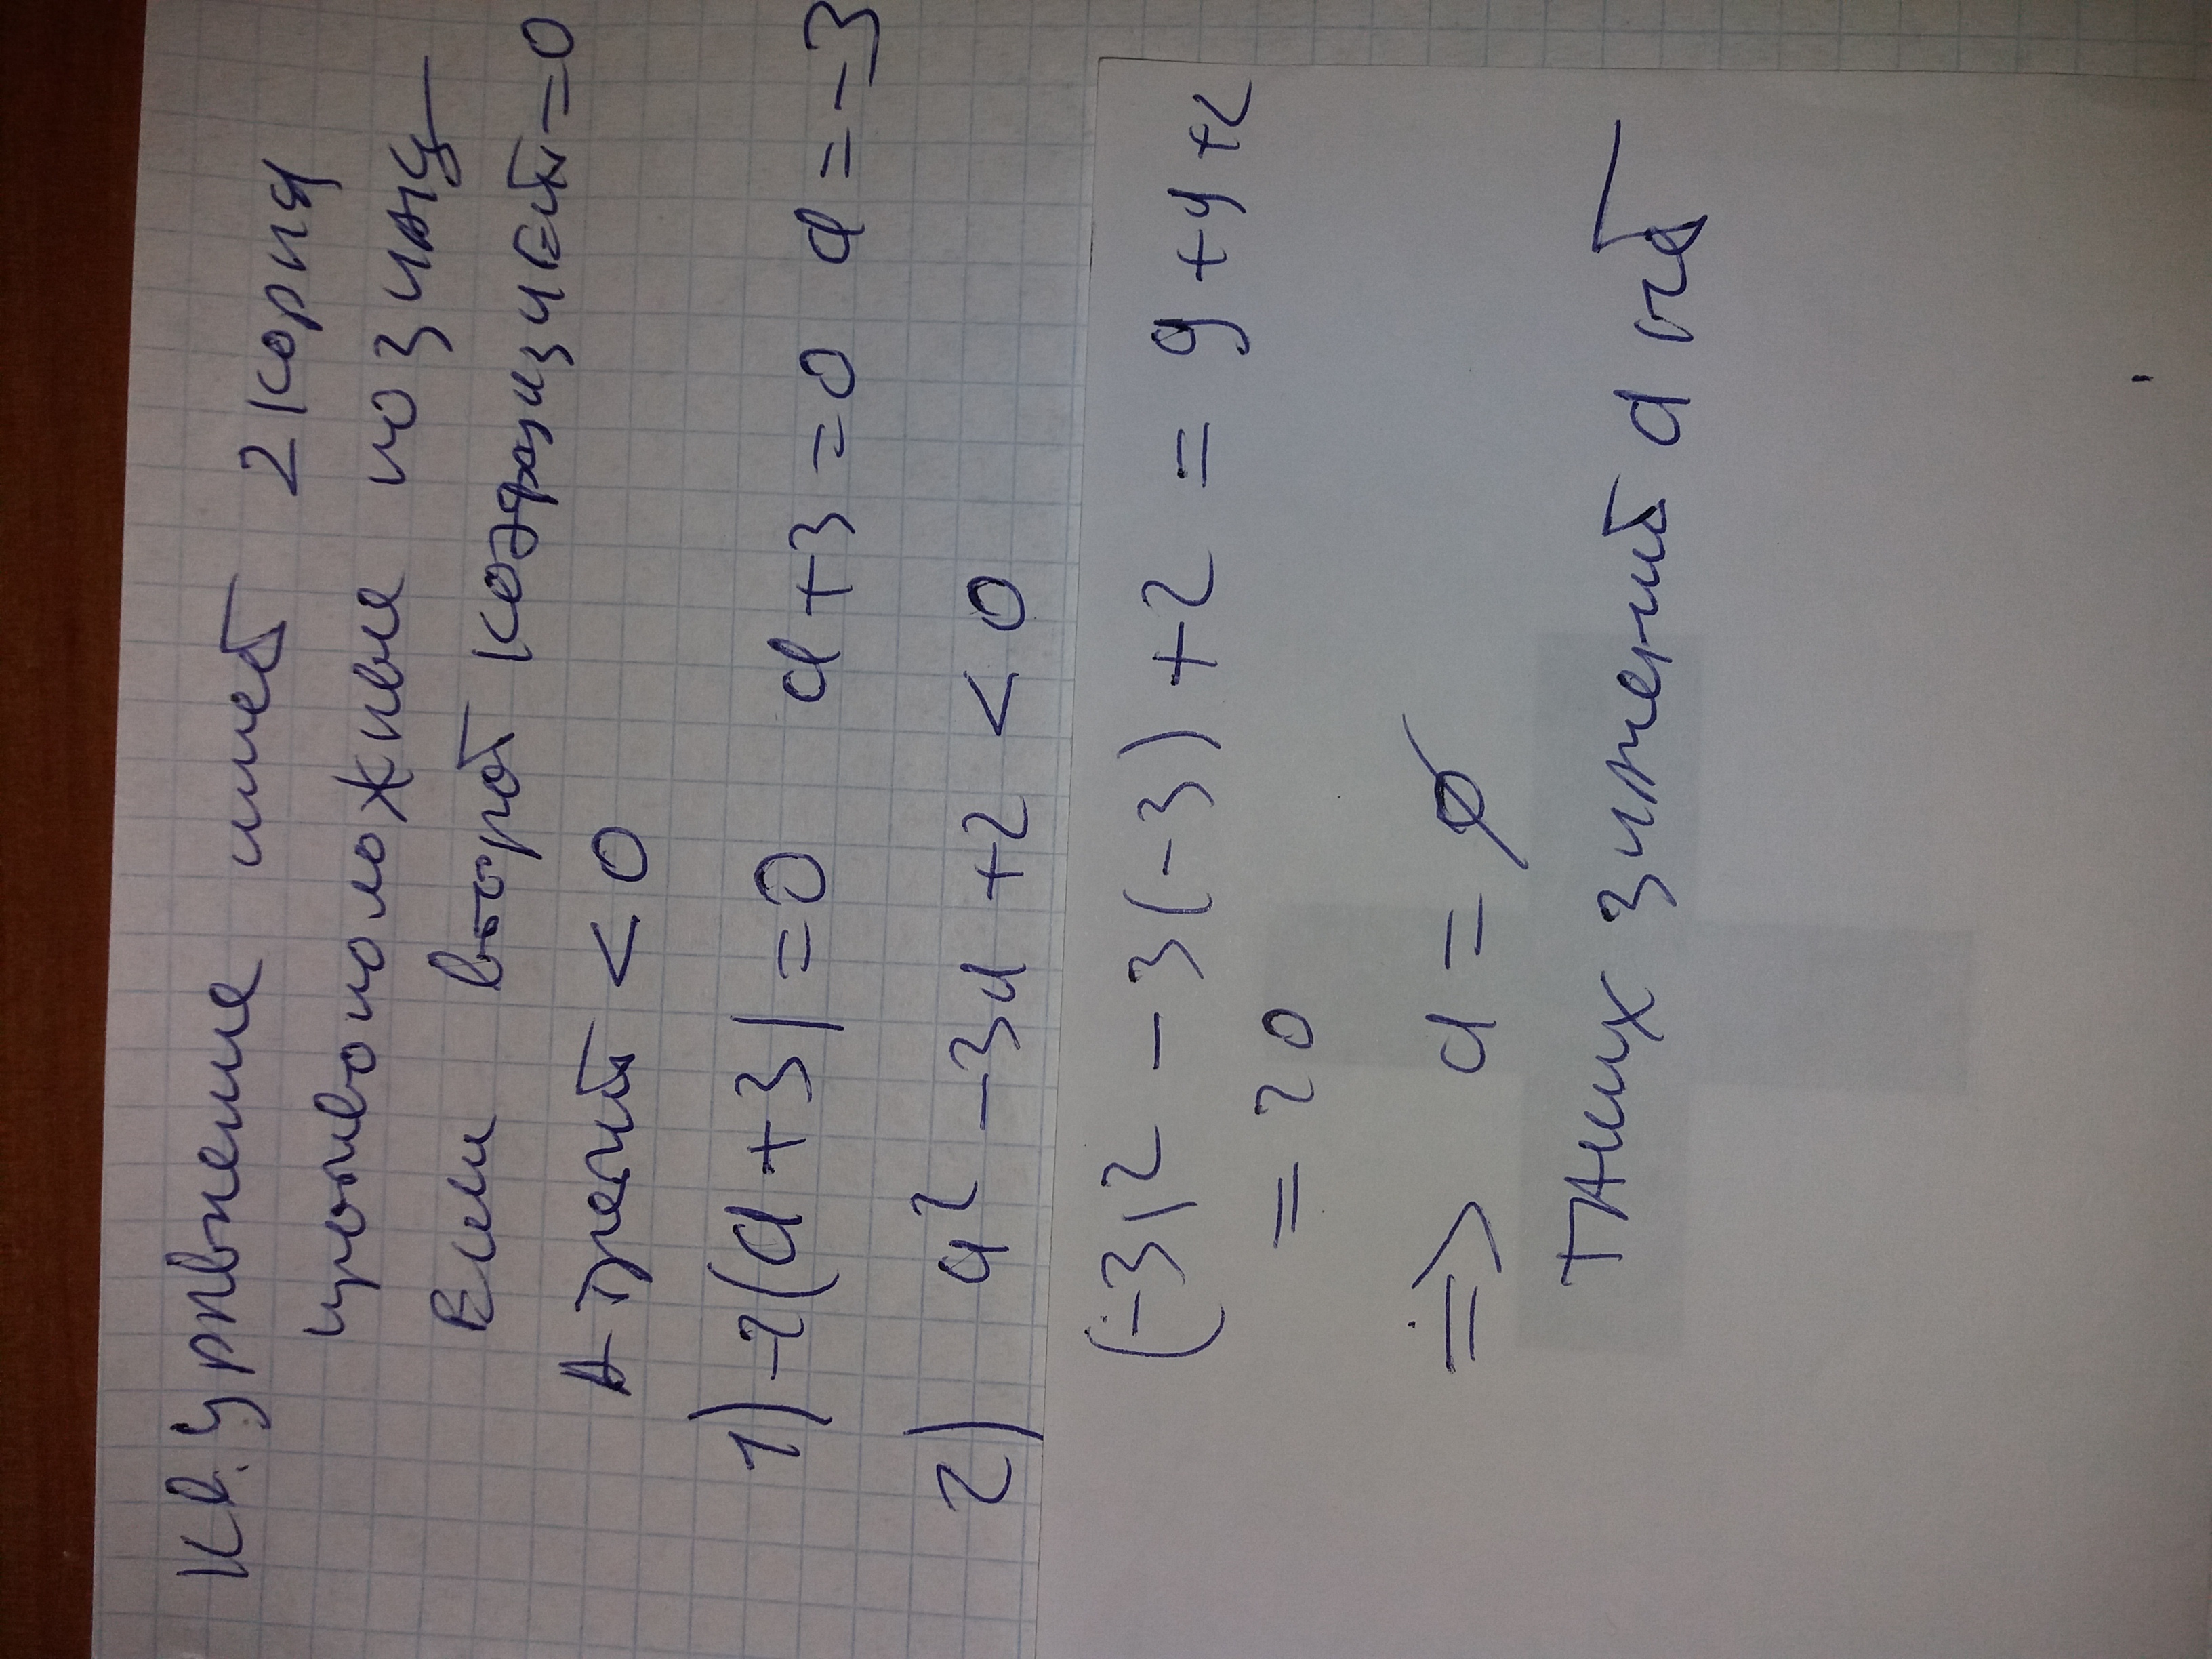 Кв. Уравнение имеет 2 корня
противоположные по знаку
Если второй коэффициент=0
а третий < 0
1) -2(a+3)=0 a+3=0 a=-3
2) a² -3a +2 < 0
(-3)² - 3(-3) +2 = 9+9+2
= 20
=> a = ∅
Таких значений a нет